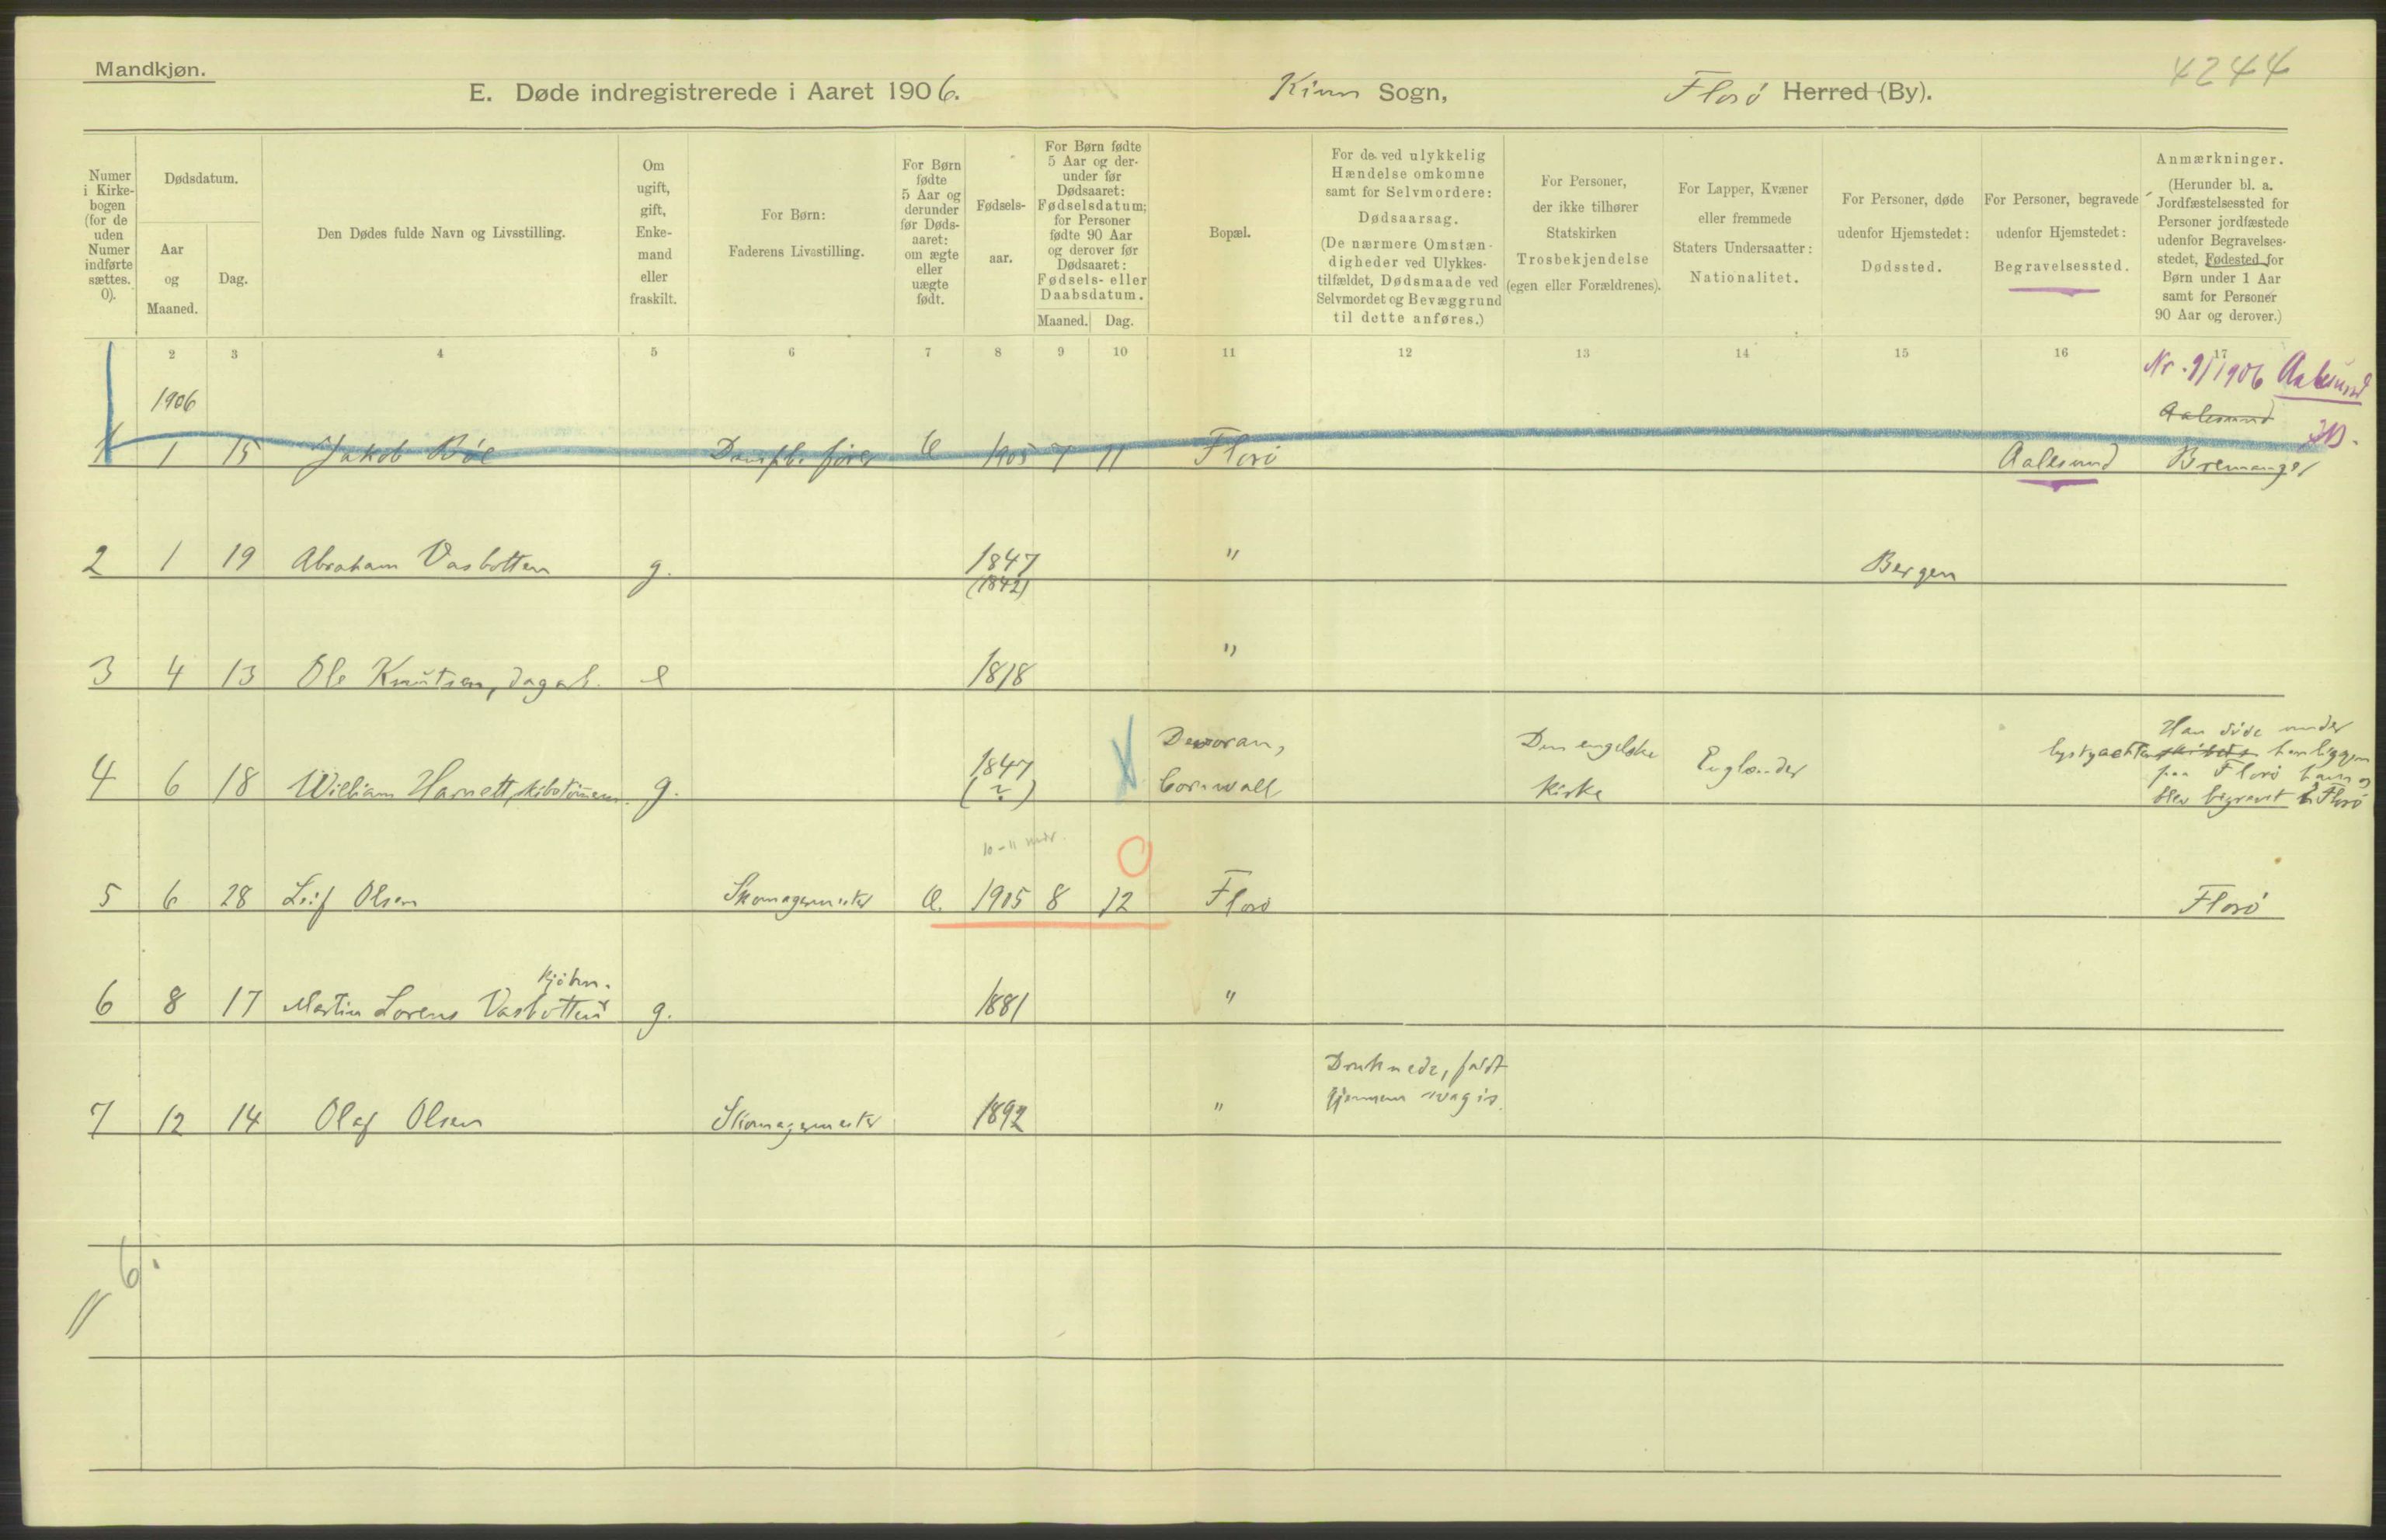 Mandkjøn.
4244
E. Døde indregistrerede i Aaret 1906. Kinn Sogn, Florø Herred (By).
Numer i Kirkebogen (for de uden Numer indførte sættes. 0).
Dødsdatum.
Aar og Maaned.
Dag.
Den Dødes fulde Navn og Livsstilling.
Om ugift, gift, Enkemand eller fraskilt.
For Børn: Faderens Livsstilling.
For Børn fødte 5 Aar og derunder før Dødsaaret: om ægte eller uægte født.
Fødselsaar.
For Børn fødte 5 Aar og derunder før Dødsaaret: Fødselsdatum; for Personer fødte 90 Aar og derover før Dødsaaret: Fødsels- eller Daabsdatum.
Maaned. Dag.
Bopæl.
For de ved ulykkelig Hændelse omkomne samt for Selvmordere: Dødsaarsag. (De nærmere Omstændigheder ved Ulykkestilfældet, Dødsmaade ved Selvmordet og Bevæggrund til dette anføres.)
For Personer, der ikke tilhører Statskirken Trosbekjendelse (egen eller Forældrenes).
For Lapper, Kvæner eller fremmede Staters Undersaatter: Nationalitet.
For Personer, døde udenfor Hjemstedet: Dødssted.
For Personer, begravede udenfor Hjemstedet: Begravelsessted.
Anmærkninger. (Herunder bl. a. Jordfæstelsessted for Personer jordfæstede udenfor Begravelsesstedet, Fødested for Børn under 1 Aar samt for Personer 90 Aar og derover.)
2 3 4 5 6 7 8 9 10 11 12 13 14 15 16 17
Nr. 9/1906 Aalesund
1906
Aalesund
1 1 15 Jakob Bøe Dampb. fører 1905 7 11 Florø Aalesund Bremanger
2 1 19 Abraham Vasbotten g. 1847 " Bergen
(1842)
3 4 13 Ole Knutsen, dagarb. e 1818 "
4 6 18 William Harnett, skibstømmerm. g. 1847 (?) Devoran, Cornwall Den engelske Kirke Englænder Han døde under lystyachten skibets henliggen paa Florø havn og blev begravet i Florø
10-11 mdr.
5 6 28 Leif Olsen Skomagermester 1905 8 12 Florø Florø
Kjøbm.
6 8 17 Martin Lorens Vasbotten g. 1881 "
7 12 14 Olaf Olsen Skomagermester 1892 " Druknede, faldt gjennem svag is.
6.